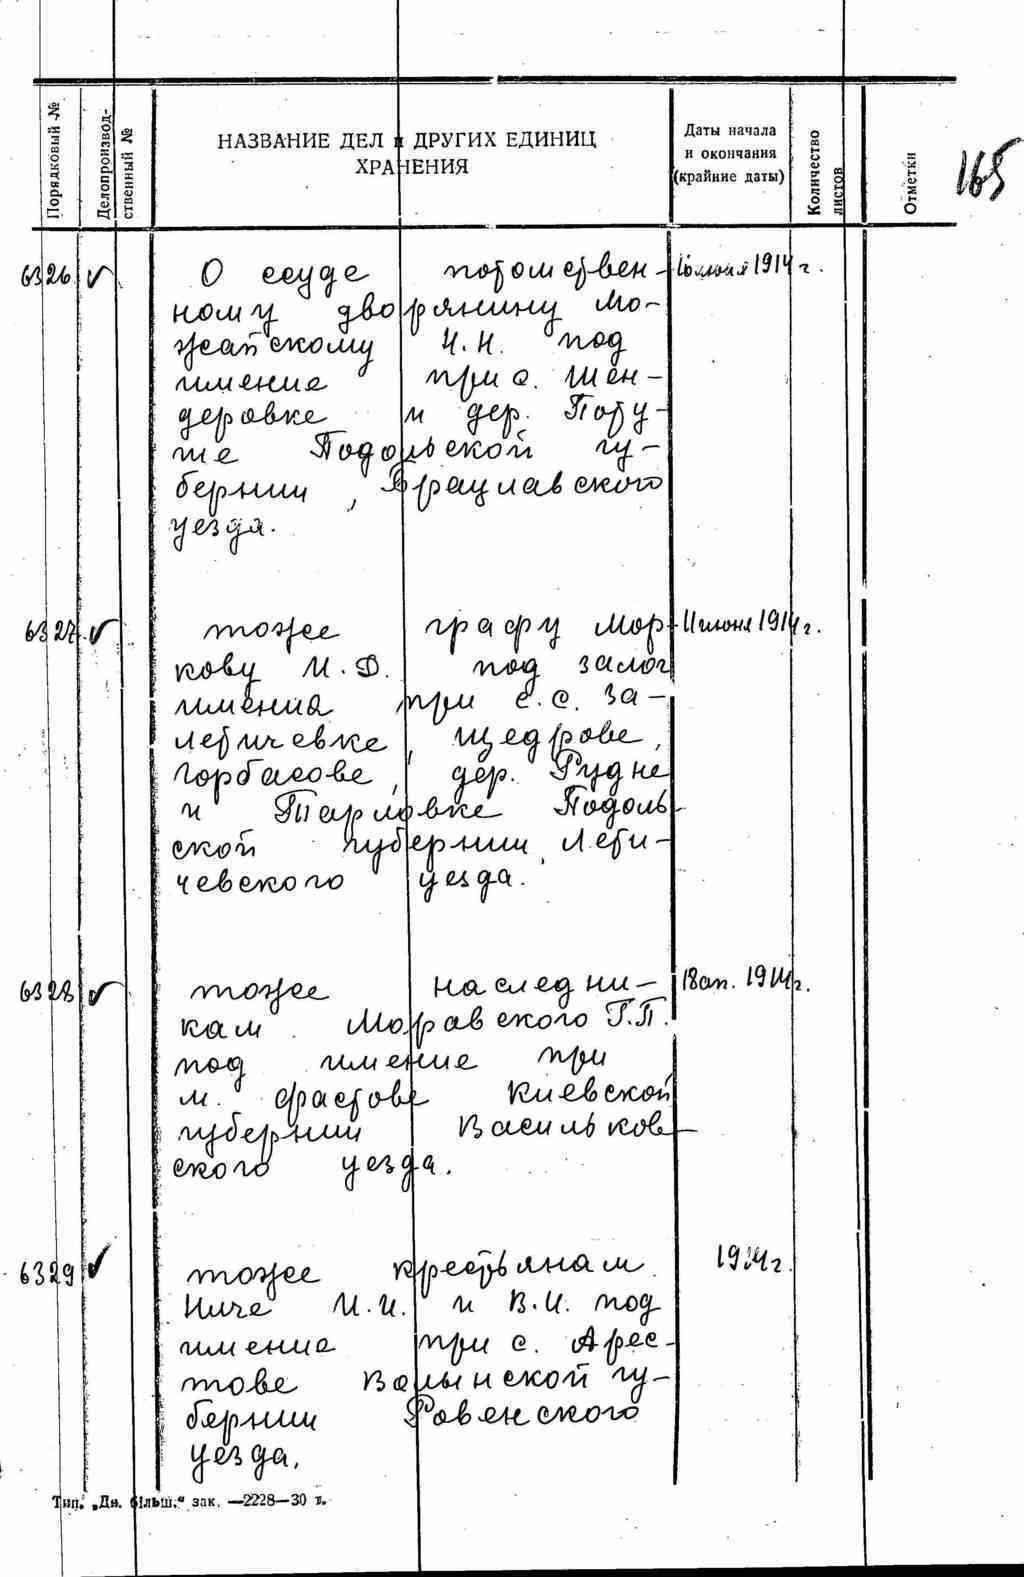 165
Порядковый №
Делопроизвод-
ственный №
НАЗВАНИЕ ДЕЛ и ДРУГИХ ЕДИНИЦ
ХРАНЕНИЯ
Даты начала
и окончания
(крайние даты)
Количество
листов
Отметки
6326 О ссуде потомствен- 16 июня 1914 г.
ному дворянину Мо-
жайскому Н.Н. под
имение при с. Шен-
деровке и дер. Поту-
ше Подольской гу-
бернии, Брацлавского
уезда.
6327 тоже графу Мор- 11 июня 1914 г.
кову И.Д. под залог
имения при с.с. За-
летичевке, Щедрове,
Горбасове, дер. Рудне
и Тарловке Подоль-
ской губернии, Лети-
чевского уезда.
6328 тоже наследни- 18 ап. 1914 г.
кам Моравского Г.П.
под имение при
м. Фастове Киевской
губернии Васильков-
ского уезда.
6329 тоже крестьянам 1914 г.
Ниче И.И. и В.И. под
имение при с. Арес-
тове Волынской гу-
бернии Ровенского
уезда.
Тип. „Дн. більш.“ зак. —2228—30 т.